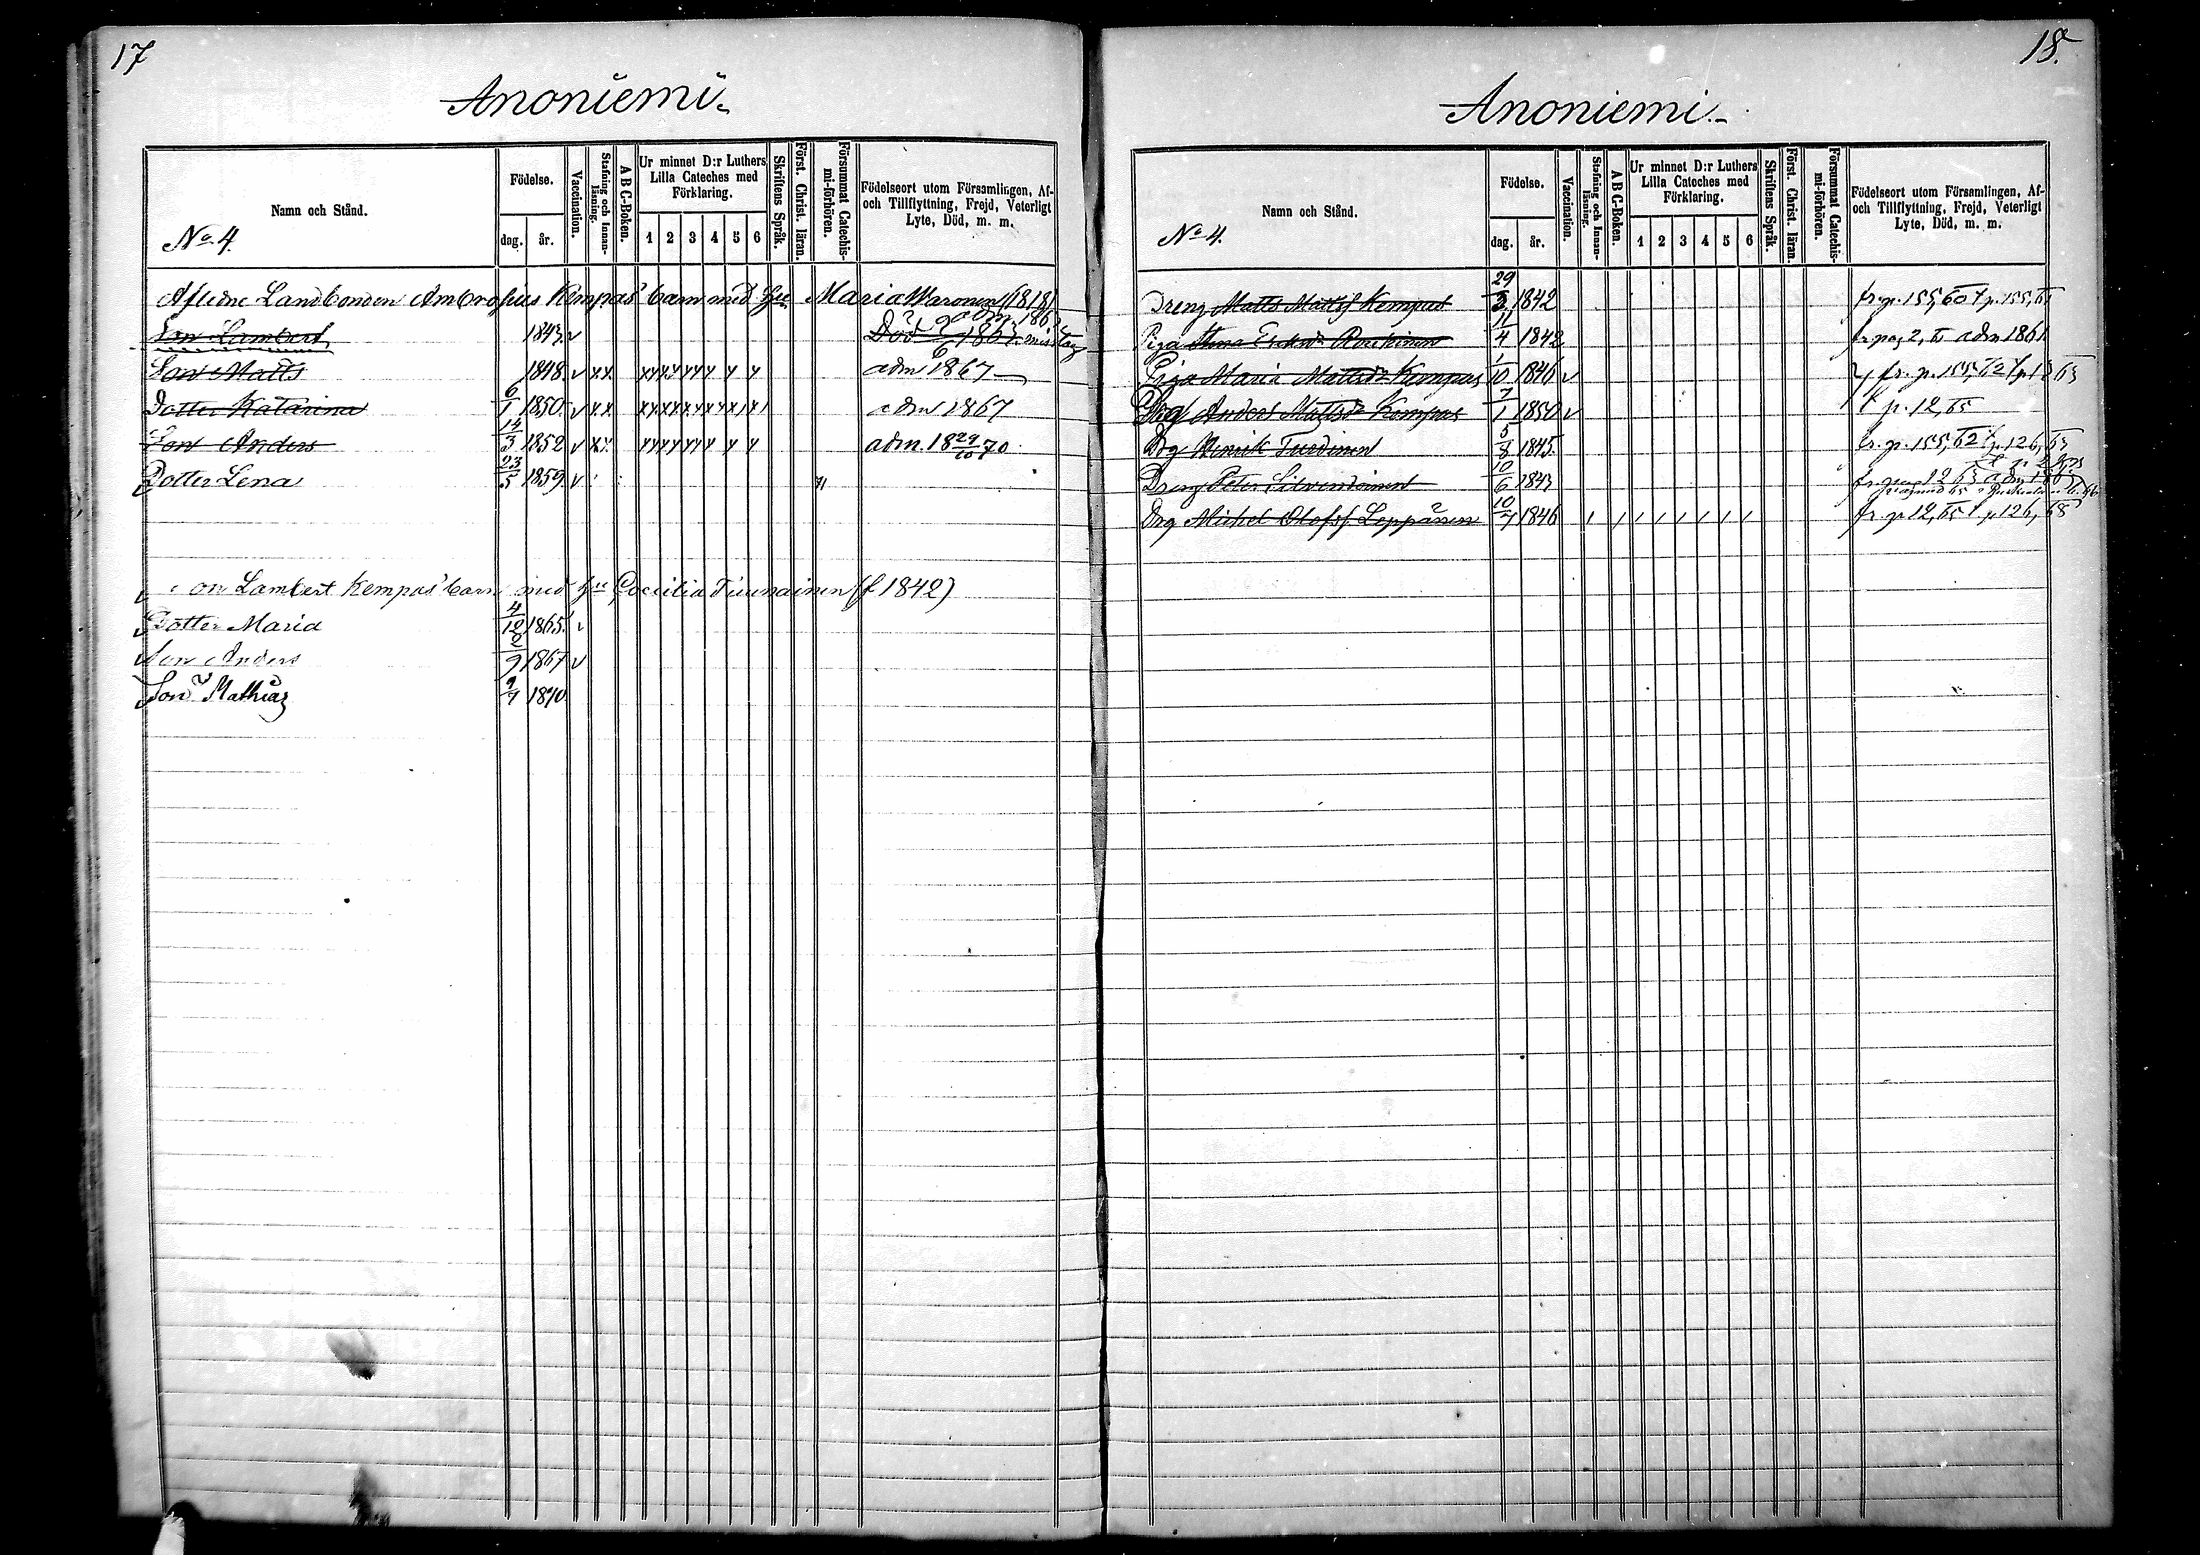 17
Anoniemi.
Namn och Stånd.
No 4.
Födelse.
dag. år.
Vaccination.
Stafning och Innanläsning.
A B C-Boken.
Ur minnet D:r Luthers Lilla Cateches med Förklaring.
1 2 3 4 5 6
Skriftens Språk.
Först. Christ. läran.
Försummat Catechismi-förhören.
Födelseort utom Församlingen, Af- och Tillflyttning, Frejd, Veterligt Lyte, Död, m. m.
Aflidne Landbonden Ambrosius Kempas' barn med Hu Maria Waronen (1818)
Son Lambert 1843 v Död 1863 misstag adm 1863
Son Matts 1848 v x x x x x x x x x x x adm 1867
Dotter Katarina 6/1 1850 v x x x x x x x x x x x adm 1867
Son Anders 14/3 1852 v x x x x x x x x x x adm. 18 29/10 70.
Dotter Lena 23/5 1859 v
Son Lambert Kempas' barn med Hu Caecilia Tiunainen (f 1842)
Dotter Maria 4/12 1865 v
Son Anders 2/9 1867 v
Son Mathias 9/7 1870
18.
Anoniemi.
Namn och Stånd.
No 4.
Födelse.
dag. år.
Vaccination.
Stafning och Innanläsning.
A B C-Boken.
Ur minnet D:r Luthers Lilla Cateches med Förklaring.
1 2 3 4 5 6
Skriftens Språk.
Först. Christ. läran.
Försummat Catechismi-förhören.
Födelseort utom Församlingen, Af- och Tillflyttning, Frejd, Veterligt Lyte, Död, m. m.
Dreng Matts Mattsf Kempas 29/3 1842 fr. p. 155, 60 t p. 155, 61
Piga Anna Ersd. 11/4 1842 fr. pag 2, adm 1861
Piga Maria Mattsdr Kempas 1/10 1846 v fr. p. 155, 62
Drg Anders Mattsn Kempas 7/1 1850 v t p. 12, 65
Drg Henrik 5/8 1845. fr. p. 155, 62 t p. 126, 63
Dreng Peter Silvendoinen 10/6 1843
Drg Michel Olofsf. Leppänen 10/7 1846 fr. p 12, 65 t p 126, 68